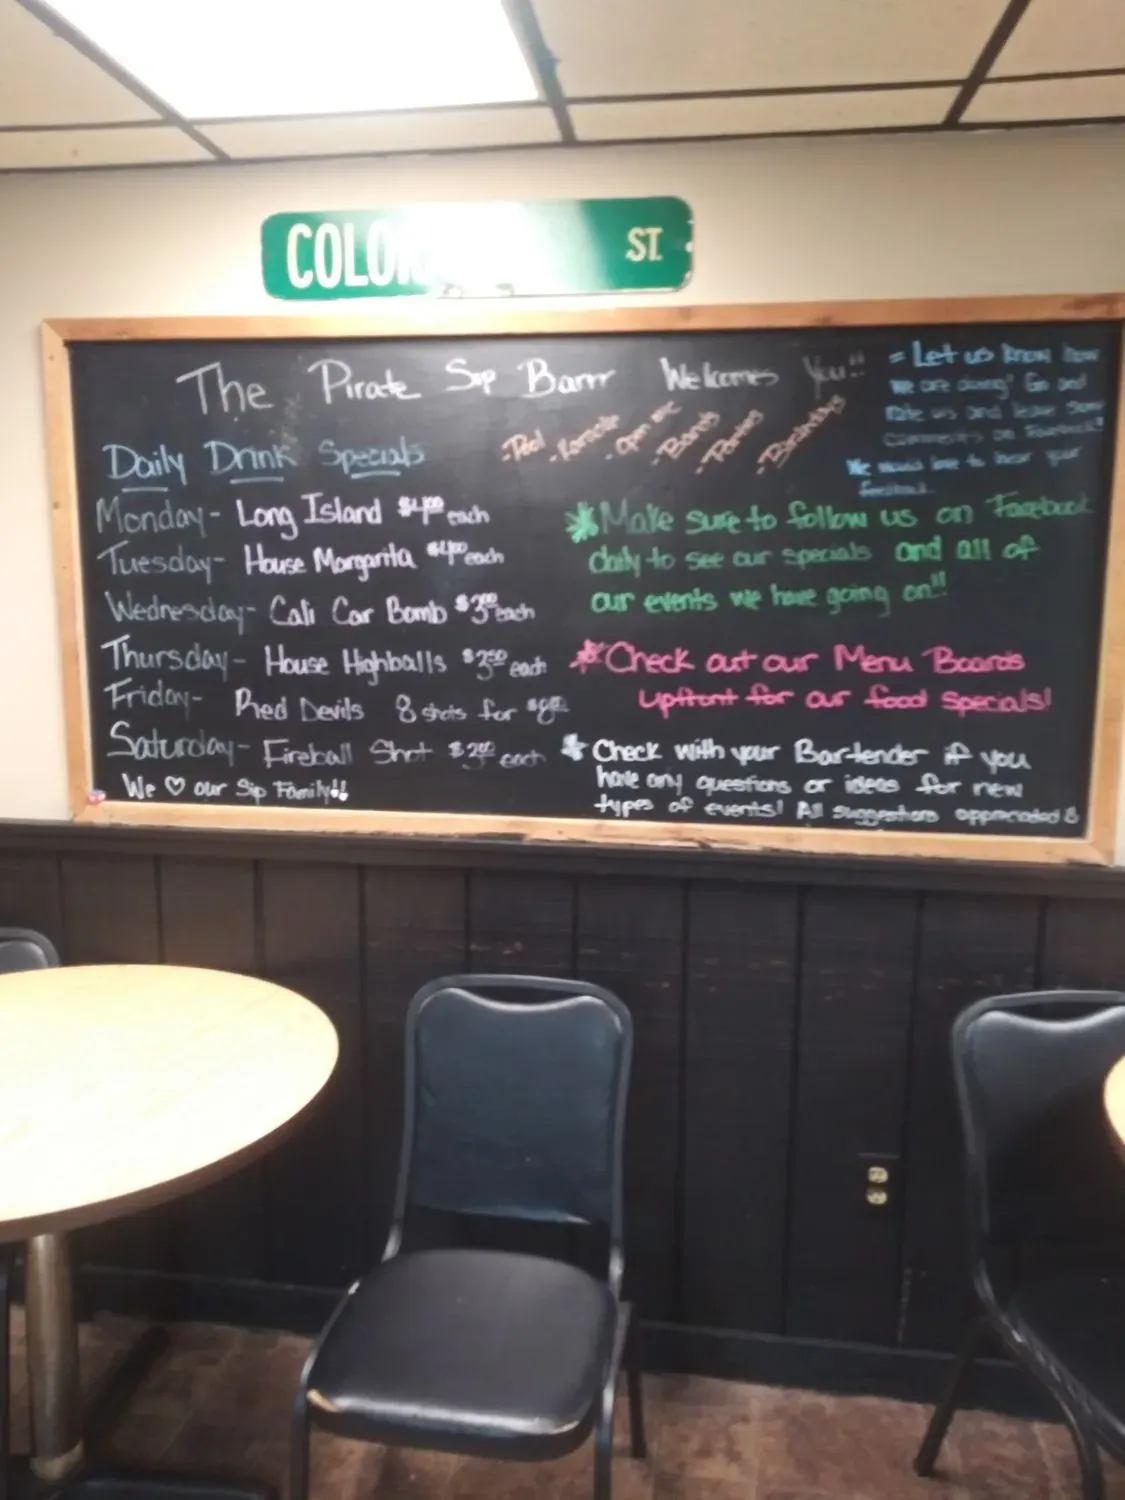 ST.
The Pirate Sip Barrr Welcomes You!!
Daily Drink Specials
Monday- Long Island $4.00 each
Tuesday- House Margarita $4.00 each
Wednesday- Cali Car Bomb $3.00 each
Thursday- House Highballs $2.50 each
Friday- Red Devils 8 shots for
Saturday- Fireball Shot each
We ♡ our Sip Family!!
-Pool
-Karaoke
-Open Mic
-Bands
-Parties
-Birthdays
= Let us know how
we are doing! Go and
rate us and leave some
comments on Facebook!
We would love to hear your
feedback.
* Make sure to follow us on Facebook
daily to see our specials and all of
our events we have going on!!
* Check out our Menu Boards
upfront for our food specials!
* Check with your Bar-tender if you
have any questions or ideas for new
types of events! All suggestions appreciated